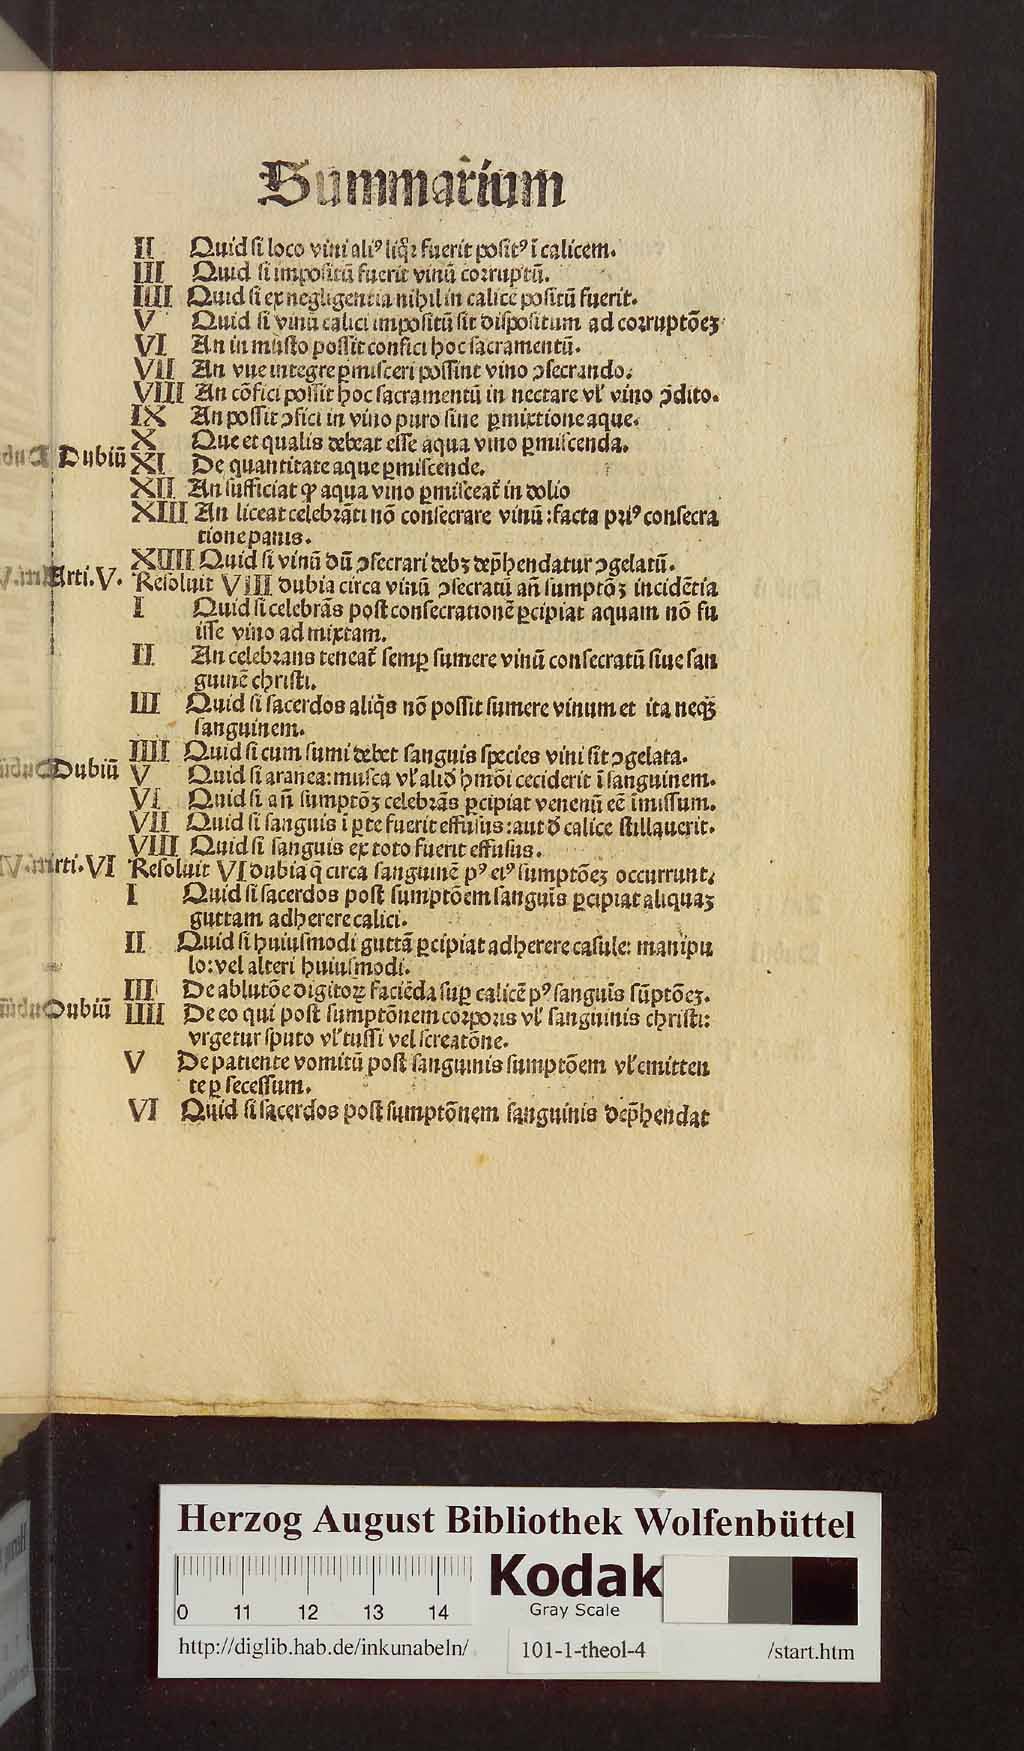 Summarium
II Quid si loco vini aliꝰ liq̃ꝛ fuerit positꝰ ĩ calicem.
III Quid si impositũ fuerit vinũ coꝛruptũ.
IIII Quid si ex negligentia nihil in calicẽ positũ fuerit.
V Quid si vinũ calici impositũ sit dispositum ad coꝛruptõeꝫ
VI An in musto possit confici hoc sacramentũ.
VII An vue integre ꝑmisceri possint vino ꝯsecrando.
VIII An cõfici possit hoc sacramentũ in nectare vl̓ vino ꝯdito.
IX An possit ꝯfici in vino puro sine ꝑmixtione aque.
X Que et qualis debeat esse aqua vino ꝑmiscenda.
Dubiũ XI De quantitate aque ꝑmiscende.
XII An sufficiat ꝙ aqua vino ꝑmisceat᷑ in dolio
XIII An liceat celebꝛãti nõ consecrare vinũ: facta pꝛiꝰ consecra
tione panis.
XIIII Quid si vinũ dũ ꝯsecrari debꝫ dep̃hendatur ꝯgelatũ.
Arti. V. Resoluit VIII dubia circa vinũ ꝯsecratũ añ sumptõꝫ incidẽtia
I Quid si celebrãs post consecrationẽ ꝑcipiat aquam nõ fu
isse vino admixtam.
II An celebꝛans teneat᷑ semꝑ sumere vinũ consecratũ siue san
guinẽ christi.
III Quid si sacerdos aliq̃s nõ possit sumere vinum et ita neqꝫ
sanguinem.
IIII Quid si cum sumi debet sanguis species vini sit ꝯgelata.
Dubiũ V Quid si aranea: musca vl̓ aliđ hmõi ceciderit ĩ sanguinem.
VI Quid si añ sumptõꝫ celebꝛãs ꝑcipiat venenũ eẽ imissum.
VII Quid si sanguis ĩ ꝑte fuerit effusus: aut đ calice stillauerit.
VIII Quid si sanguis ex toto fuerit effusus.
Arti. VI Resoluit VI dubia q̃ circa sanguinẽ pꝰ eiꝰ sumptõeꝫ occurrunt.
I Quid si sacerdos post sumptõem sanguĩs ꝑcipiat aliquaꝫ
guttam adherere calici.
II Quid si huiusmodi guttã ꝑcipiat adherere casule: manipu
lo: vel alteri huiusmodi.
III De ablutõe digitoꝝ faciẽda suꝑ calicẽ pꝰ sanguĩs sũptõeꝫ.
Dubiũ IIII De eo qui post sumptõnem coꝛpoꝛis vl̓ sanguinis christi:
vrgetur sputo vl̓ tussi vel screatõne.
V De patiente vomitũ post sanguinis sumptõem vl̓ emitten
te ꝑ secessum.
VI Quid si sacerdos post sumptõnem sanguinis dep̃hendat
Herzog August Bibliothek Wolfenbüttel
0 11 12 13 14
Kodak
Gray Scale
http://diglib.hab.de/inkunabeln/ 101-1-theol-4 /start.htm